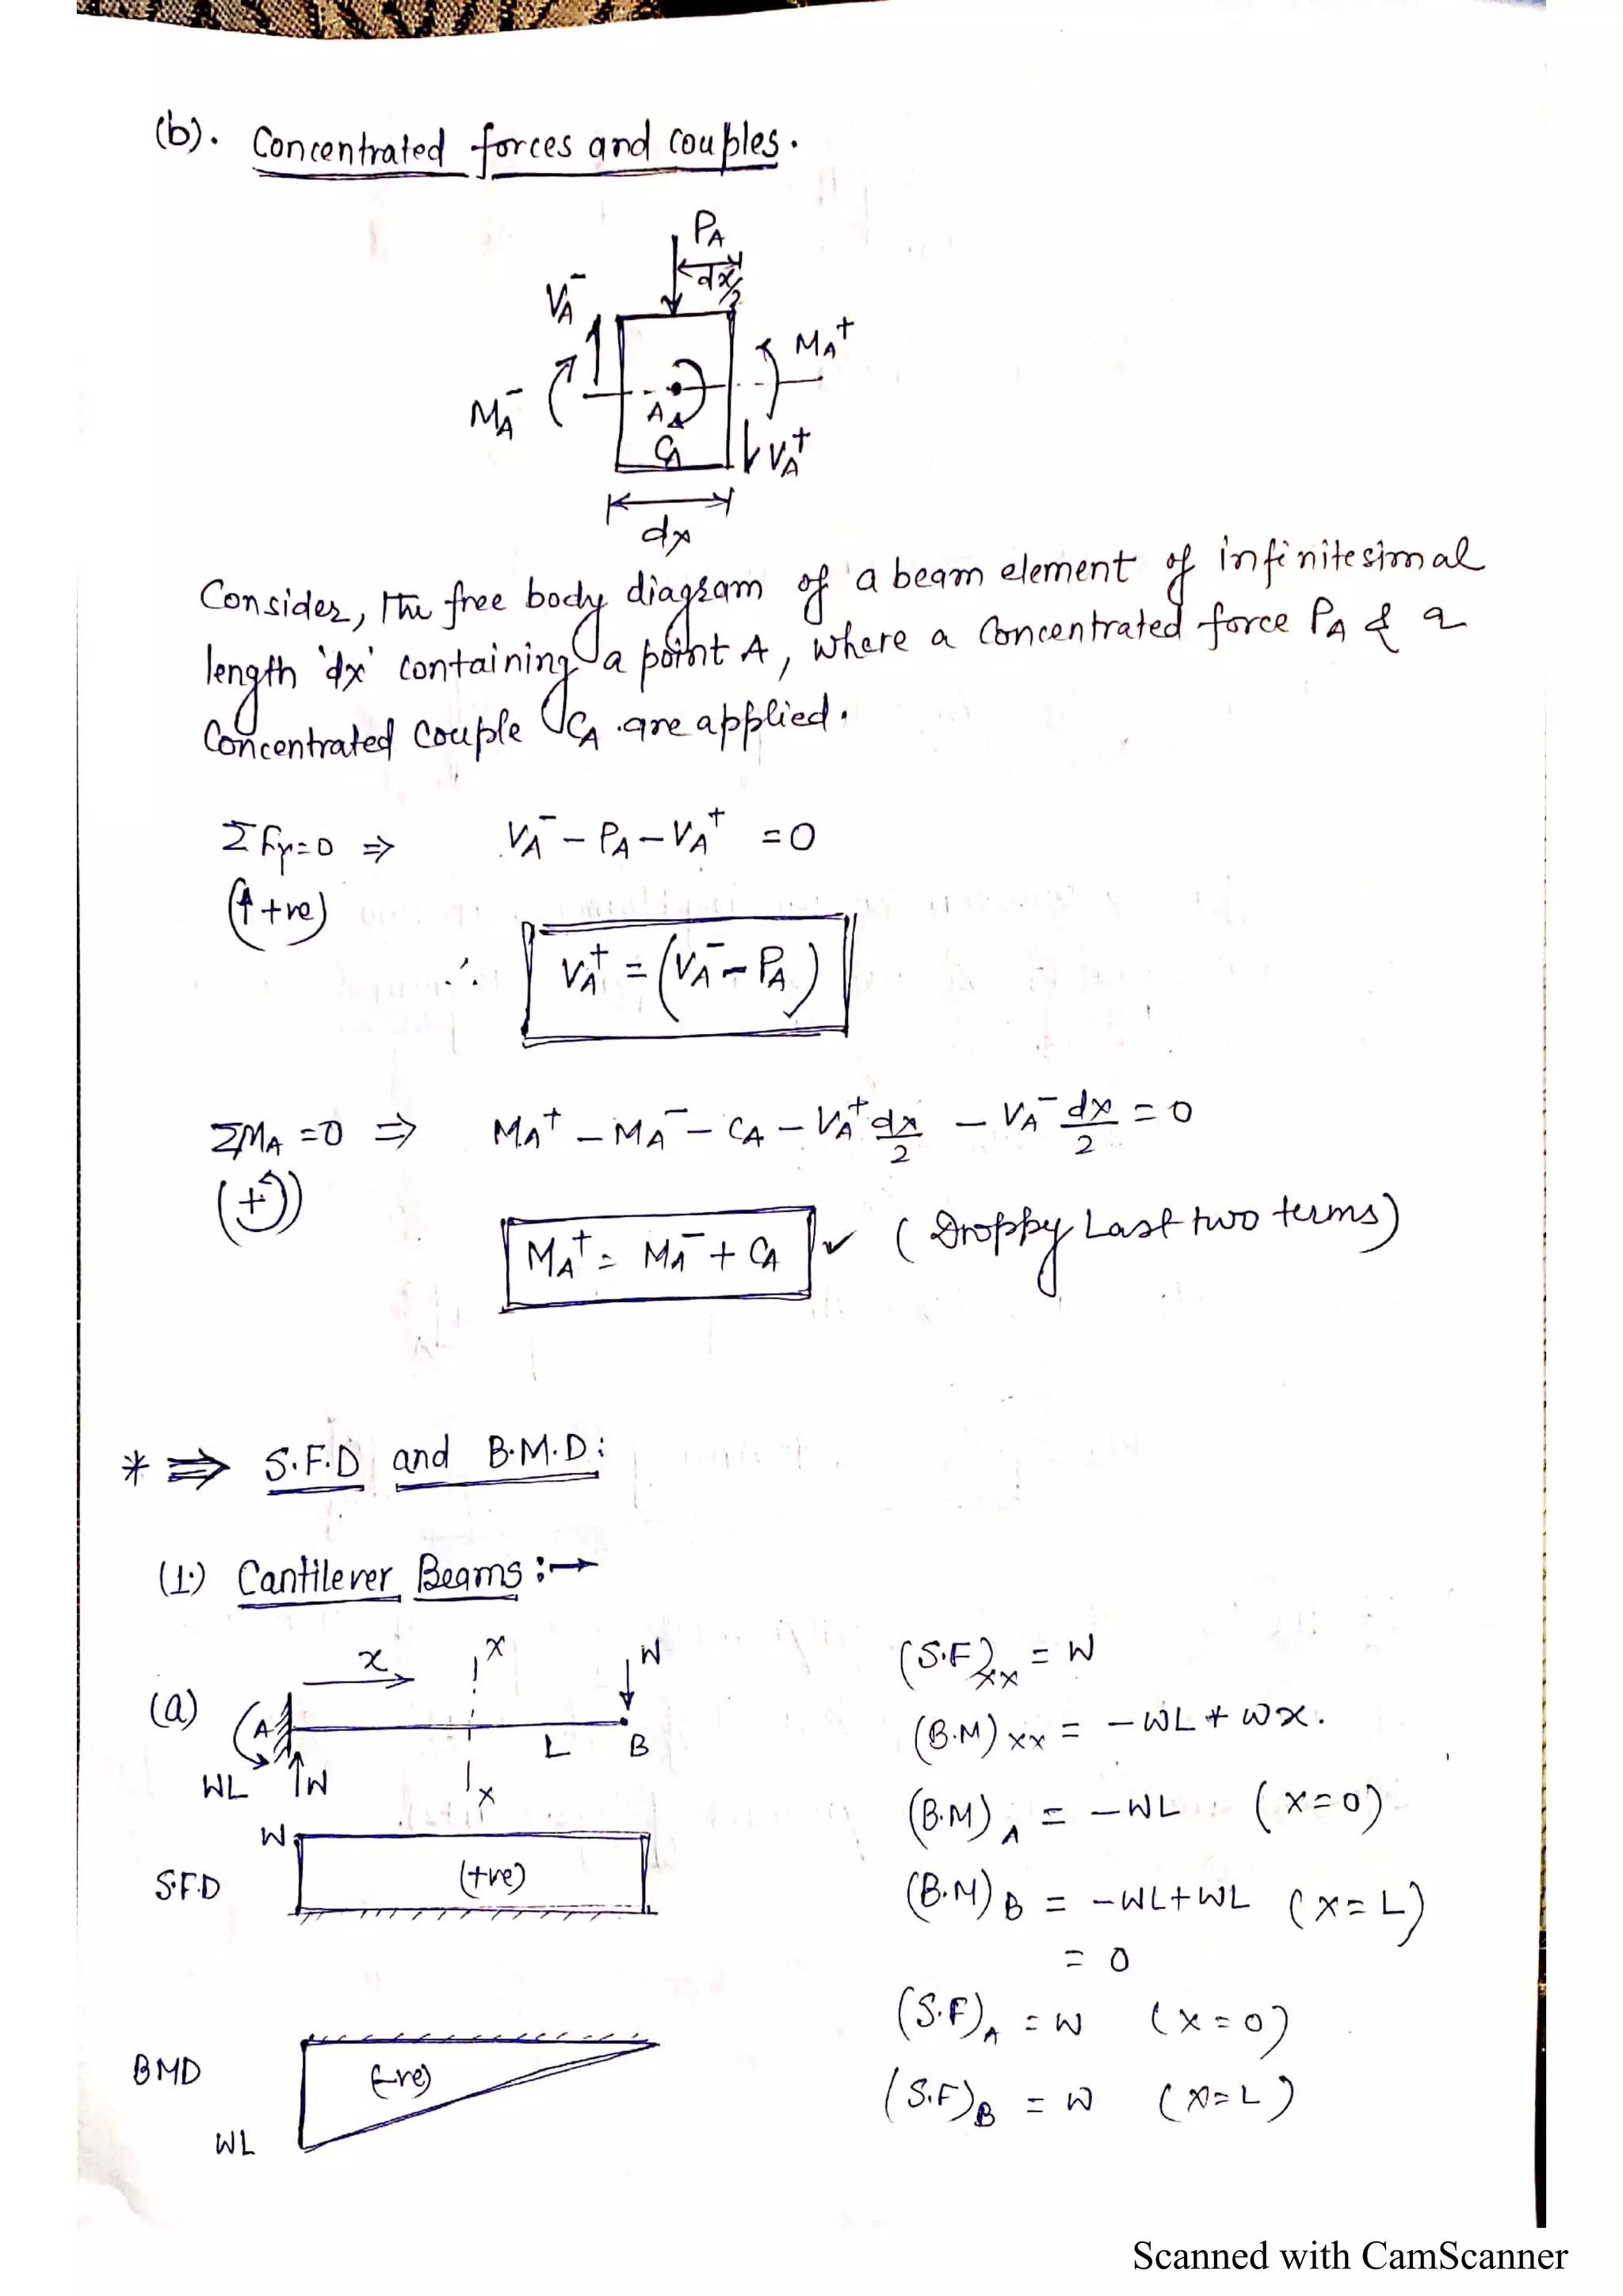 (b). Concentrated forces and couples.
P_A
dx/2
V_A^-
M_A^+
M_A^-
A
C_A
V_A^+
dx
Consider, the free body diagram of a beam element of infinitesimal
length 'dx' containing a point A, where a Concentrated force P_A & a
Concentrated Couple C_A are applied.
ΣFy=0 ⇒ V_A^- - P_A - V_A^+ = 0
(↑ +ve)
∴ V_A^+ = (V_A^- - P_A)
ΣM_A = 0 ⇒ M_A^+ - M_A^- - C_A - V_A^+ dx/2 - V_A^- dx/2 = 0
(+↺)
M_A^+ = M_A^- + C_A ✓ (Droppy Last two terms)
* ⇒ S.F.D and B.M.D:
(1.) Cantilever Beams :→
(a)
x
X
W
A
L
B
WL
W
X
(S.F)xx = W
(B.M)xx = -WL + Wx.
(B.M)A = -WL (x=0)
(B.M)B = -WL+WL (x=L)
= 0
(S.F)A = W (x=0)
(S.F)B = W (x=L)
W
S.F.D
(+ve)
BMD
(-ve)
WL
Scanned with CamScanner